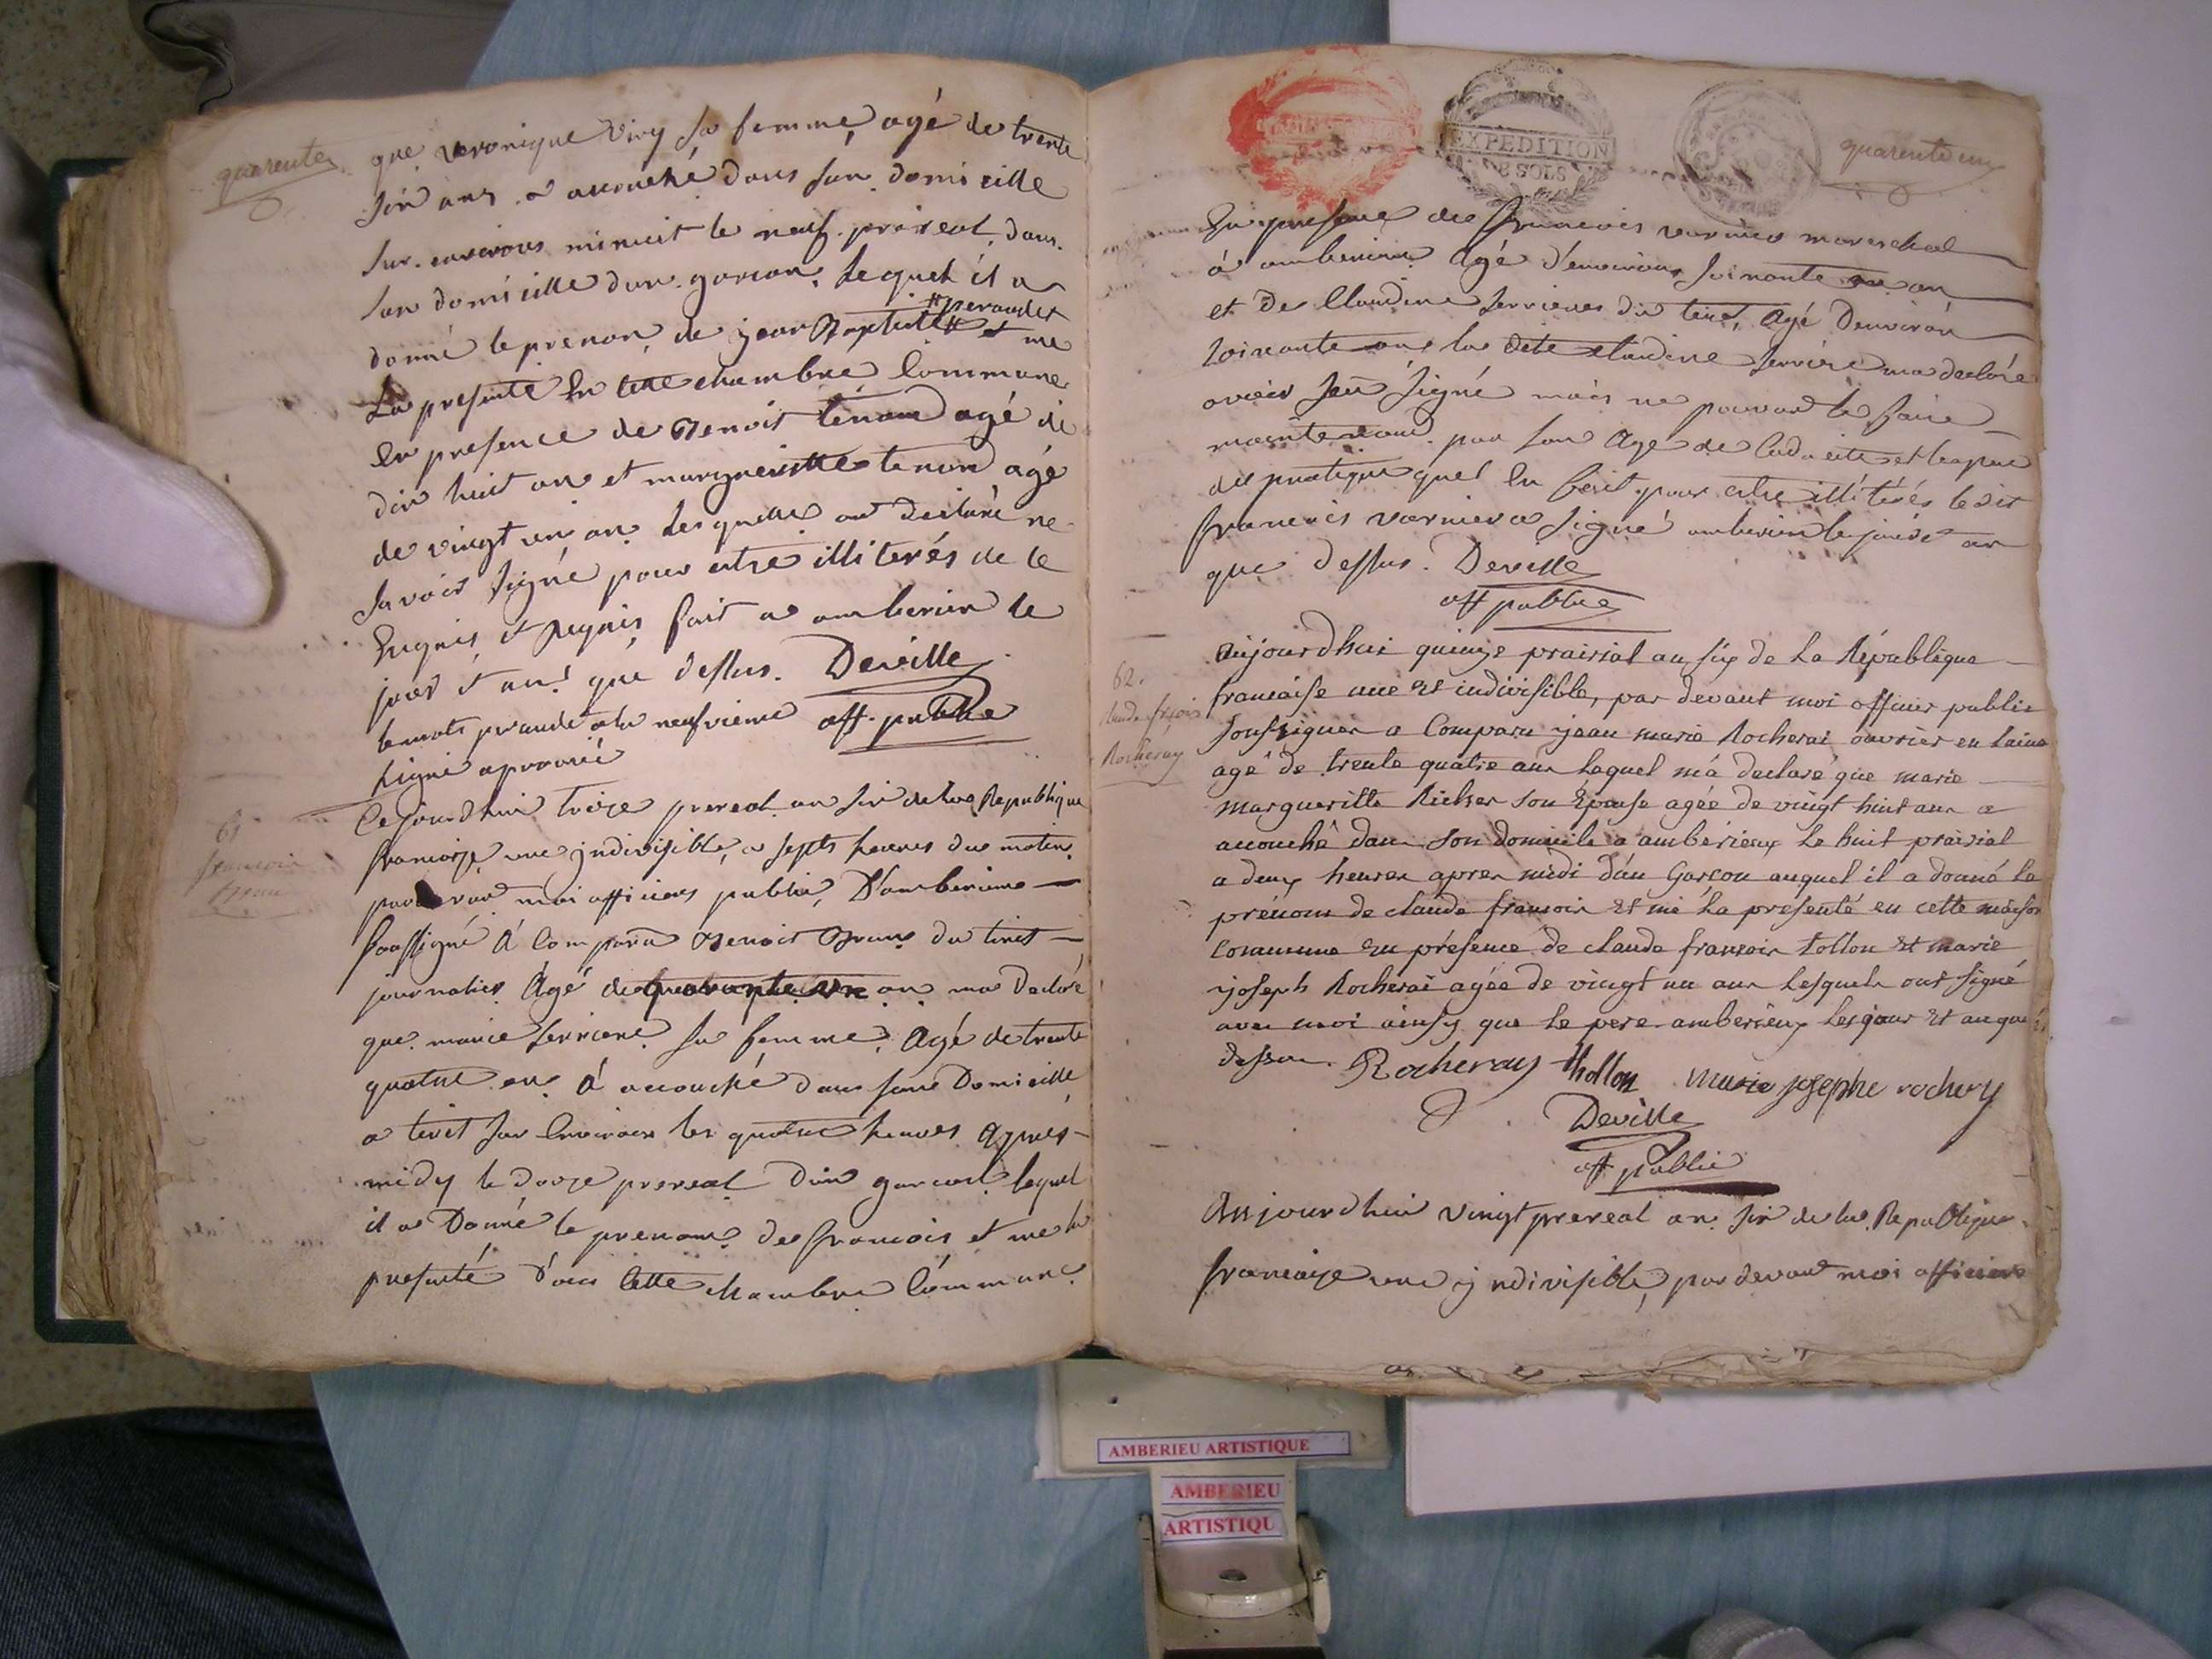 quarente
que veronique Viny sa femme, agé de trente
six ans a acouché dans son domicille
sur environs minuit le neuf prereal, dans
son domicille dun garcon. Lequel il a
donné le prenon de jean Baptiste # et me
# peraudet
La presenté En cette chambre Commune
En presence de Benoit tenand agé de
dix huit an et margueritte tenand agé
de vingt un an Lesquelle on declaré ne
savoir signé pour etre illiterés de ce
Enquis et Requis fait a amberieu le
jour et an que dessus. Deville
off. public
le mots peraudet a la neufvieme
Ligne aprouvé
61
francois
Brun
Cejourdhui treize prereal an six de la Republique
francoize une yndivisible, a septs heures du matin
par devan moi officiers public, D'amberieux
soussigné á Comparu Benoit Brun du tiret
journalier Agé de quarante un an ma Declaré
que marie serriere sa femme, Agé de trente
quatre an á acouché dans sont Domicille
a tiret sur Environ les quatre heures Apres
midy le douze prereal D'un garcont lequel
il a Donné le prenom de francois et me la
presenté Dans Cette chambre Commune
EXPEDITION
DE SOLS
quarente un
En presence de francois varnier mareschal
á amberieu Agé d'environs soixante an
et De Claudine serrieres du tiret, Agé Denviron
soixante ans la dite Claudine serrière ma declaré
avoir seu signé mais ne pouvant le faire
maintenant par son Age de Caducite et le peu
de pratique quel En fait pour etre illitérés le dit
francois varnier a signé amberieu le jour et an
que dessus. Deville
off public
62.
Claude françois
Rocheray
Aujourdhui quinze prairial an six de La République
francaise une et indivisible, par devant moi officier public
soussigner a Comparu jean marie Rocherai ouvrier en Laine
agé de trente quatre ans Laquel m'a declaré que marie
margueritte Richer son Epouse agée de vingt huit ans a
acouché dans son domicile a ambérieux Le huit prairial
a deux heures apres midi d'un Garcon auquel il a donné Le
prénom de claude francois et me La presenté en cette maison
Commune En présence de claude francois tollon et marie
joseph Rocherai agée de vingt un ans Lesquels ont signé
avec moi ainsy que Le pere amberieux Les jour et an que
dessus. Rocheray thollon marie josephe rochery
Deville
off public
Aujourdhui vingt prereal an six de la Republique
francaize une yndivisible, par devant moi officiers
AMBERIEU ARTISTIQUE
AMBERIEU
ARTISTIQU